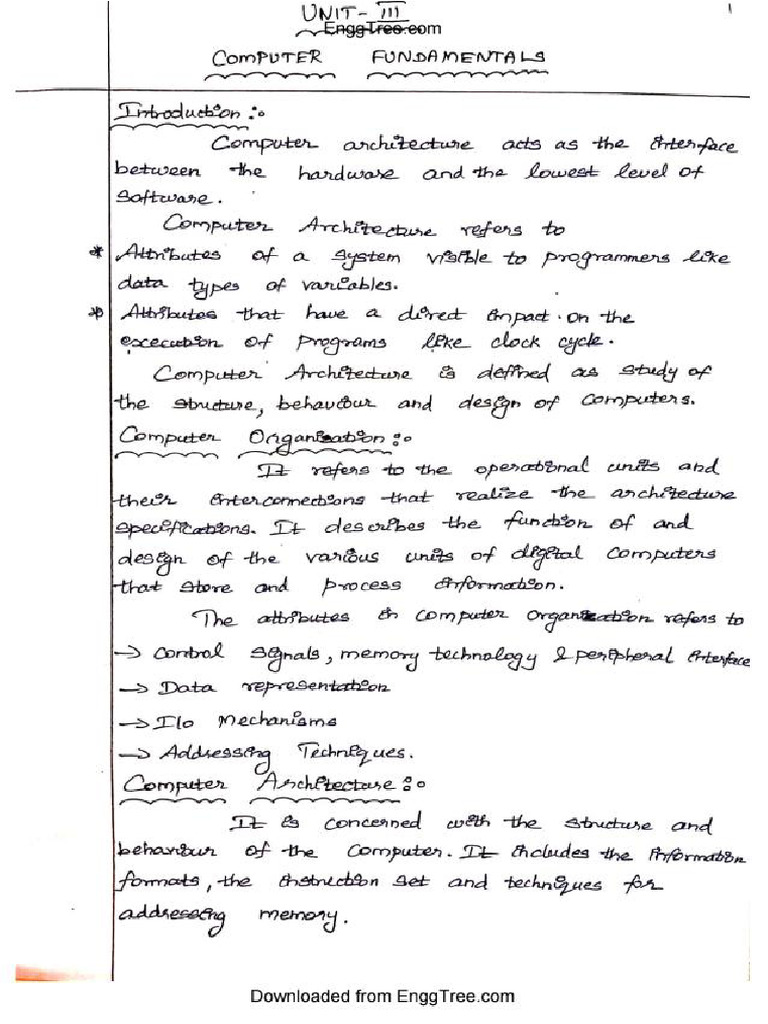 UNIT-III
1
EnggTree.com
COMPUTER FUNDAMENTALS
Introduction:-
Computer architecture acts as the interface
between the hardware and the lowest level of
software.
Computer Architecture refers to
* Attributes of a system visible to programmers like
data types of variables.
* Attributes that have a direct impact on the
execution of programs like clock cycle.
Computer Architecture is defined as study of
the structure, behaviour and design of computers.
Computer Organization:-
It refers to the operational units and
their interconnections that realize the architecture
specifications. It describes the function of and
design of the various units of digital computers
that store and process information.
The attributes in computer organization refers to
→ Control signals, memory technology & peripheral interface
→ Data representation
→ I/o Mechanisms
→ Addressing Techniques.
Computer Architecture:-
It is concerned with the structure and
behaviour of the computer. It includes the information
formats, the instruction set and techniques for
addressing memory.
Downloaded from EnggTree.com